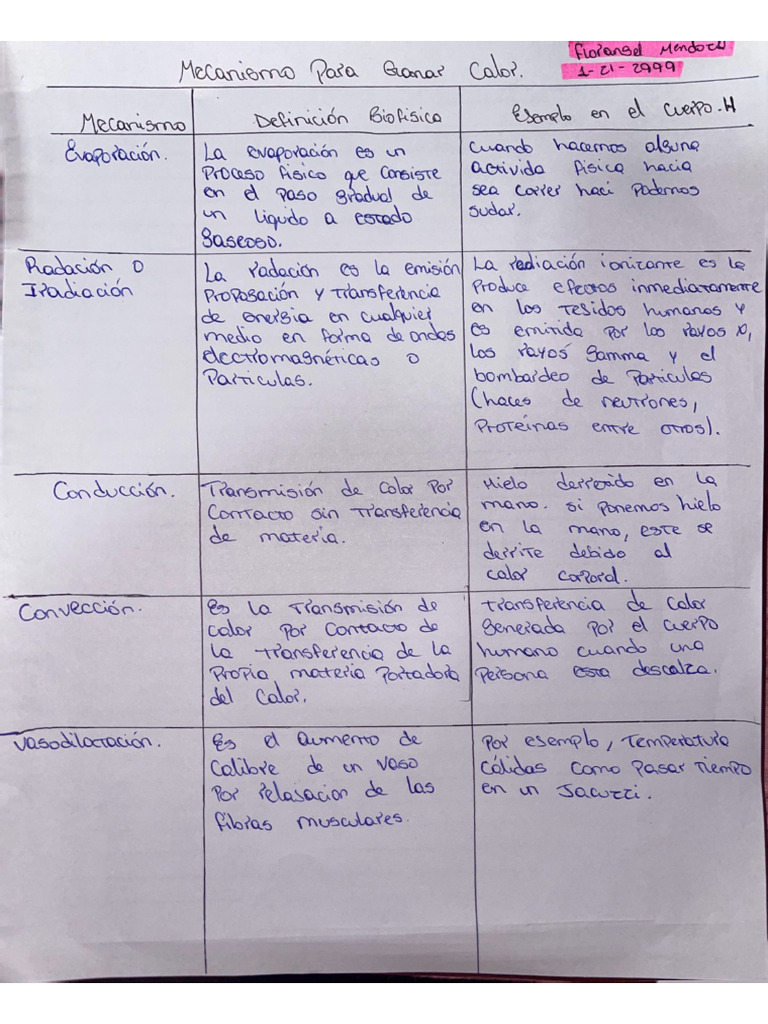 Floransel Mendoza
1-21-2999
Mecanismo Para Ganar Calor.
Mecanismo
Definición Biofisica
Esemplo en el cuerpo.H
Evaporación.
La evaporación es un
Proceso fisico que consiste
en el paso gradual de
un liquido a estado
gaseoso.
cuando hacemos alguna
activida fisica hacia
sea correr haci Podemos
sudar.
Radación o
Iradiación
La radación es la emisión
Propagación y Transferencia
de energia en cualquier
medio en forma de ondas
electromagnéticas o
Particulas.
La radiación ionizante es la
Produce efectos inmediatamente
en los Tesidos humanos y
es emitida por los rayos x,
los rayos gamma y el
bombardeo de Particulas
(haces de neutrones,
Proteínas entre otros).
Conducción.
Transmisión de calor por
contacto sin transferencia
de materia.
Hielo derretido en la
mano. si ponemos hielo
en la mano, este se
derrite debido al
calor corporal.
Convección.
Es la Transmisión de
calor por contacto de
la transferencia de la
Propia materia Portadora
del calor.
Transferencia de calor
generada por el cuerpo
humano cuando una
Persona esta descalza.
Vasodilatación.
Es el aumento de
calibre de un vaso
por relasacion de las
fibras musculares.
Por esemplo, Temperatura
cálidas como pasar Tiempo
en un Jacuzzi.